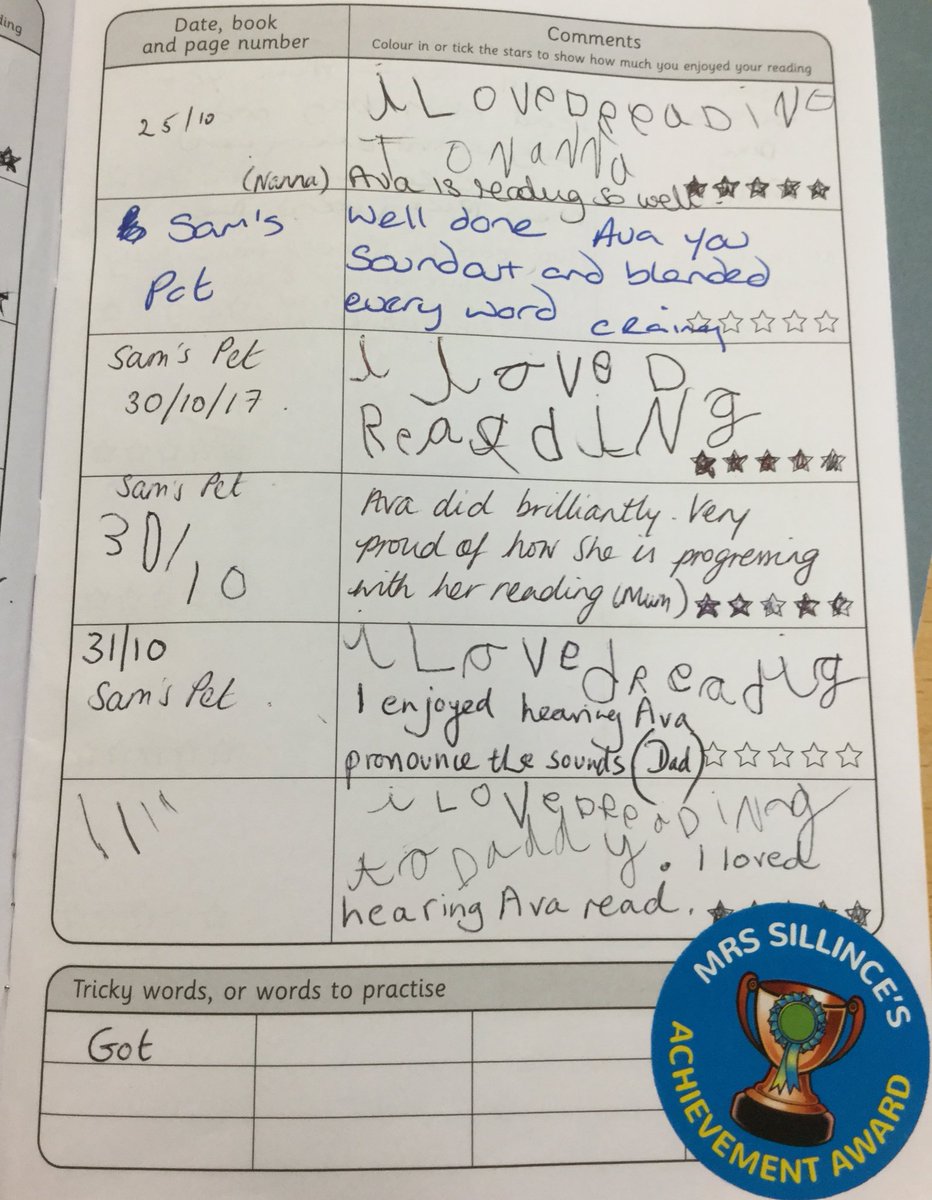 ding
Date, book
and page number
Comments
Colour in or tick the stars to show how much you enjoyed your reading
25/10
(Nanna)
i LOVeDReaDiNG
TONaNNa
Ava is reading so well.
Sam's
Pet
Well done Ava you
Soundout and blended
every word
Sam's Pet
30/10/17.
i loveD
ReadiNg
Sam's Pet
30/10
Ava did brilliantly. Very
proud of how she is progressing
with her reading (Mum)
31/10
Sam's Pet.
i Lovedreadig
I enjoyed hearing Ava
pronounce the sounds (Dad)
1/11
i LOVeDReaDiNg
toDaddy. I loved
hearing Ava read.
Tricky words, or words to practise
Got
MRS SILLINCE'S
ACHIEVEMENT AWARD